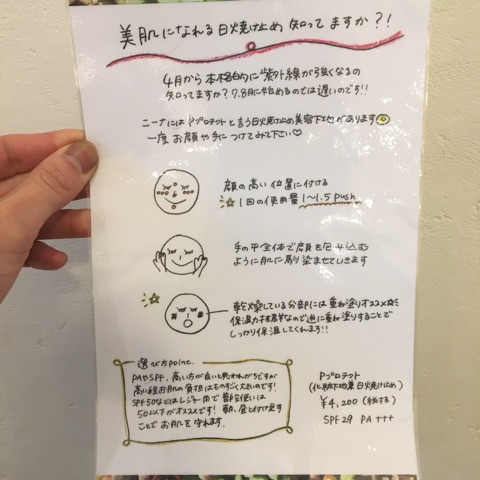 美肌になれる日焼け止め知ってますか?!
4月から本格的に紫外線が強くなるの
知ってますか? 7.8月に始めるのでは遅いのです!!
ニーナにはPプロテクトと言う日焼け止め美容下地があります
一度お顔や手につけてみて下さい♡
顔の高い位置に付ける
☆1回の使用量 1〜1.5 push
手の平全体で顔を包み込む
ように肌に馴染ませていきます
☆
乾燥している分部には重ね塗りオススメ☆
保湿力抜群なので逆に重ね塗りすることで
しっかり保湿してくれます!!
選び方point.
PAやSPF.高い方が良いと思われがちですが
高い程お肌の負担はものすごく大きいのです!
SPF50などはレジャー用で普段使いは
50以下がオススメです! 朝、昼と付け足す
ことでお肌を守れます.
Pプロテクト
(化粧下地兼日焼け止め)
¥4,200 (税抜)
SPF 29 PA+++